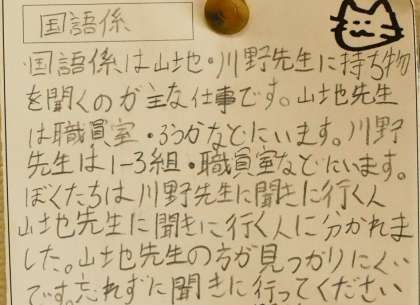 国語係
国語係は山地・川野先生に持ち物
を聞くのが主な仕事です。山地先生
は職員室・ろうかなどにいます。川野
先生は1-3組・職員室などにいます。
ぼくたちは川野先生に聞きに行く人
山地先生に聞きに行く人に分かれまし
した。山地先生の方が見つかりにくい
です。忘れずに聞きに行ってください